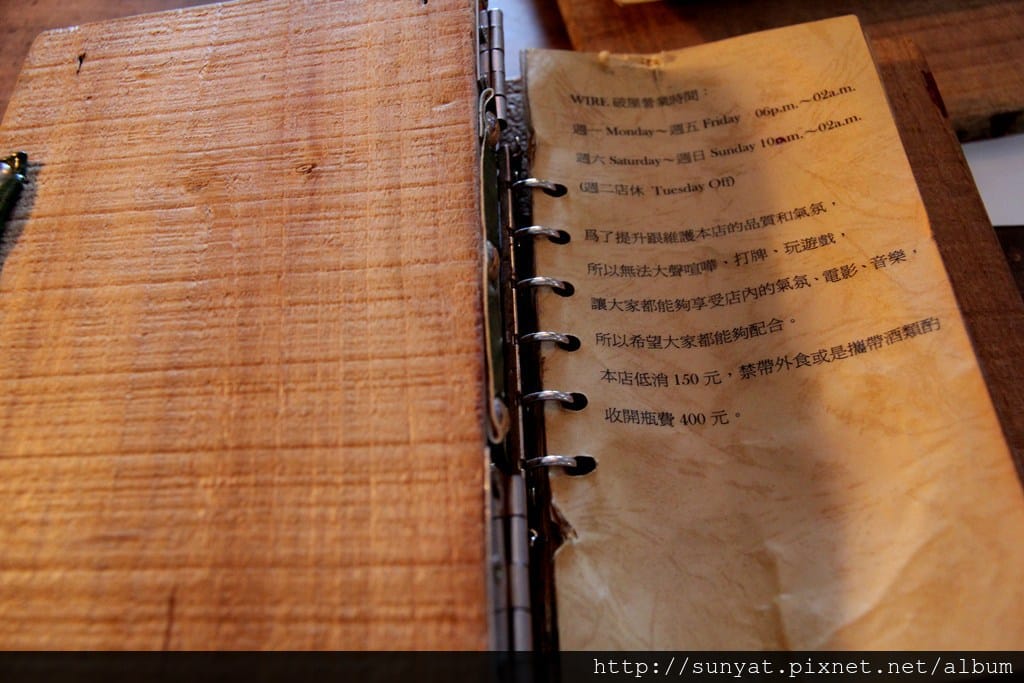 WIRE 破屋營業時間：
週一 Monday～週五 Friday 06p.m.～02a.m.
週六 Saturday～週日 Sunday 10a.m.～02a.m.
(週二店休 Tuesday Off)
為了提升跟維護本店的品質和氣氛，
所以無法大聲喧嘩、打牌、玩遊戲，
讓大家都能夠享受店內的氣氛、電影、音樂，
所以希望大家都能夠配合。
本店低消 150 元，禁帶外食或是攜帶酒類酌
收開瓶費 400 元。
http://sunyat.pixnet.net/album